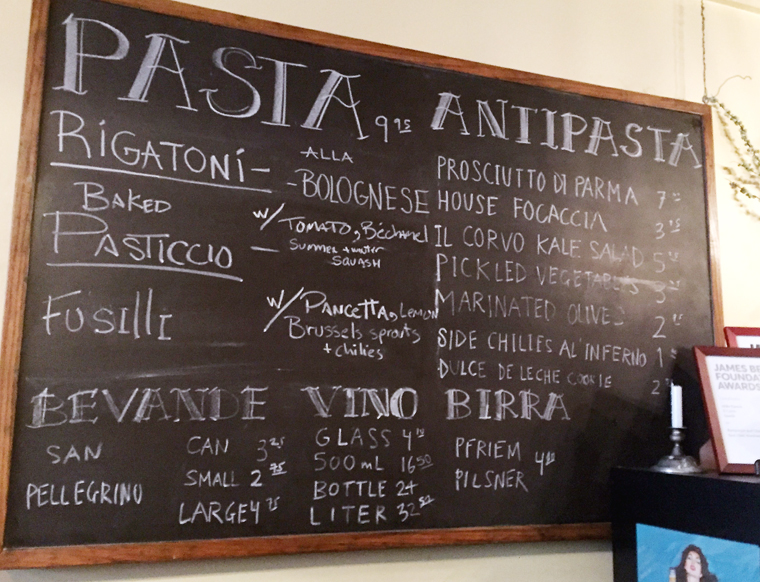 PASTA 9 95
RIGATONI - ALLA
- BOLOGNESE
BAKED
PASTICCIO - w/ TOMATO, Béchamel
summer + winter
SQUASH
FUSILLI w/ PANCETTA, Lemon
Brussels sprouts
+ chilies
ANTIPASTA
PROSCIUTTO DI PARMA 7
HOUSE FOCACCIA 3
IL CORVO KALE SALAD 5
PICKLED VEGETABLES 3
MARINATED OLIVES 2
SIDE CHILIES AL'INFERNO 1
DULCE DE LECHE COOKIE 2
BEVANDE
SAN
PELLEGRINO
CAN 3 25
SMALL 2 75
LARGE 4
VINO
GLASS 4
500 mL 16 50
BOTTLE 24
LITER 32
BIRRA
PFRIEM
PILSNER 4
JAMES BE
FOUNDA
AWARDS